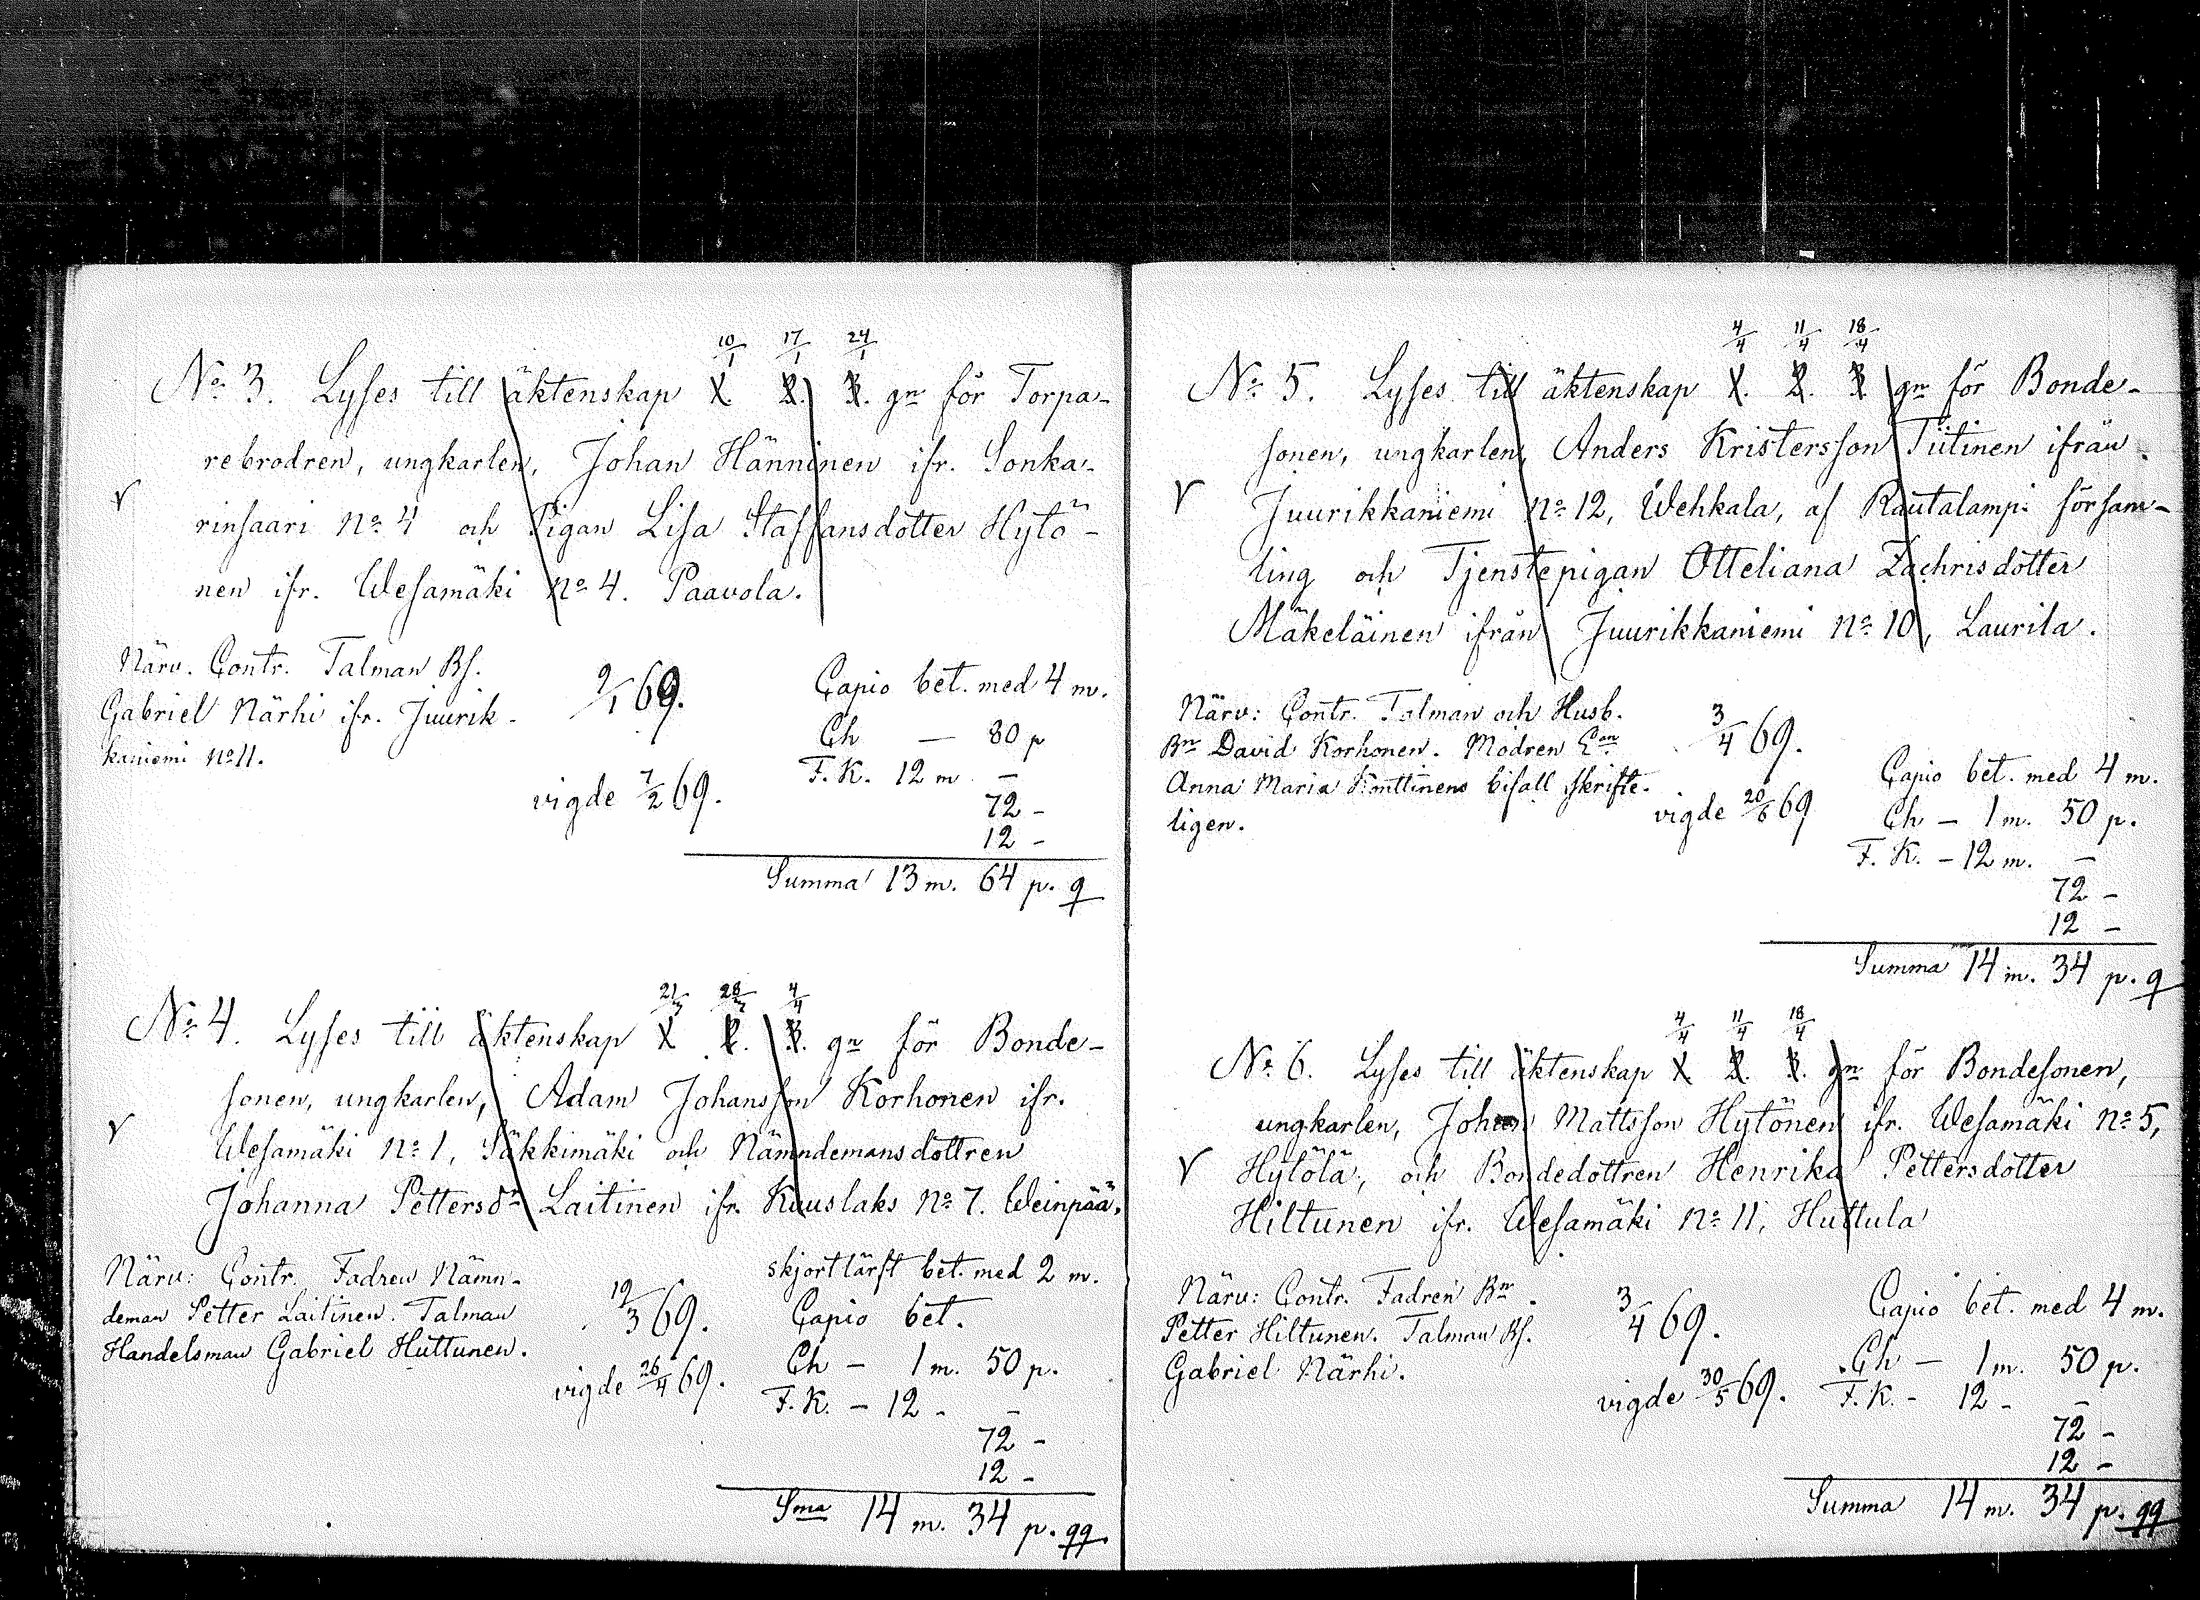 10/1 17/1 24/1
No 3. Lyses till äktenskap 1. 2. 3. gn för Torpa-
rebrodren, ungkarlen, Johan Hänninen ifr. Sonka-
rinsaari No 4 och Pigan Lisa Staffansdotter Hytö-
nen ifr. Wesamäki No 4. Paavola.
Närv. Contr. Talman Bs.
Gabriel Närhi ifr. Juurik-
kaniemi No 11.
9/1 69.
vigde 7/2 69.
Capio bet. med 4 m.
Ch — 80 p
F. K. 12 m. —
72 -
12 -
Summa 13 m. 64 p. q
21/3 28/3 4/4
No 4. Lyses till äktenskap 1 2. 3. gn för Bonde-
sonen, ungkarlen, Adam Johansson Korhonen ifr.
Wesamäki No 1, Säkkimäki och Nämndemansdottren
Johanna Pettersdr Laitinen ifr. Kuuslaks No 7. Weinpää.
Närv: Contr. Fadren Nämn-
deman Petter Laitinen. Talman
Handelsman Gabriel Huttunen.
19/3 69.
vigde 26/4 69.
skjortlärft bet. med 2 m.
Capio bet.
Ch — 1 m. 50 p.
F. K. — 12 - -
72 -
12 -
Sma 14 m. 34 p. qq
4/4 11/4 18/4
No 5. Lyses till äktenskap 1. 2. 3 gn för Bonde-
sonen, ungkarlen, Anders Kristersson Tiitinen ifrån
Juurikkaniemi No 12, Wehkala, af Rautalampi försam-
ling och Tjenstepigan Otteliana Zachrisdotter
Mäkeläinen ifrån Juurikkaniemi No 10, Laurila.
Närv: Contr. Talman och Husb.
Bn David Korhonen. Modren
Anna Maria bifall skrifte-
ligen.
3/4 69.
vigde 20/6 69
Capio bet. med 4 m.
Ch — 1 m. 50 p.
F. K. — 12 m. —
72 -
12 -
Summa 14 m. 34 p. q
4/4 11/4 18/4
No 6. Lyses till äktenskap 1 2. 3. gn för Bondesonen,
ungkarlen, Johan Mattsson Hytönen ifr. Wesamäki No 5,
Hytölä, och Bondedottren Henrika Pettersdotter
Hiltunen ifr. Wesamäki No 11, Huttula
Närv: Contr. Fadren Bn
Petter Hiltunen. Talman Bs.
Gabriel Närhi.
3/4 69.
vigde 30/5 69.
Capio bet. med 4 m.
Ch — 1 m. 50 p.
F. K. - 12 - -
72 -
12 -
Summa 14 m. 34 p. qq